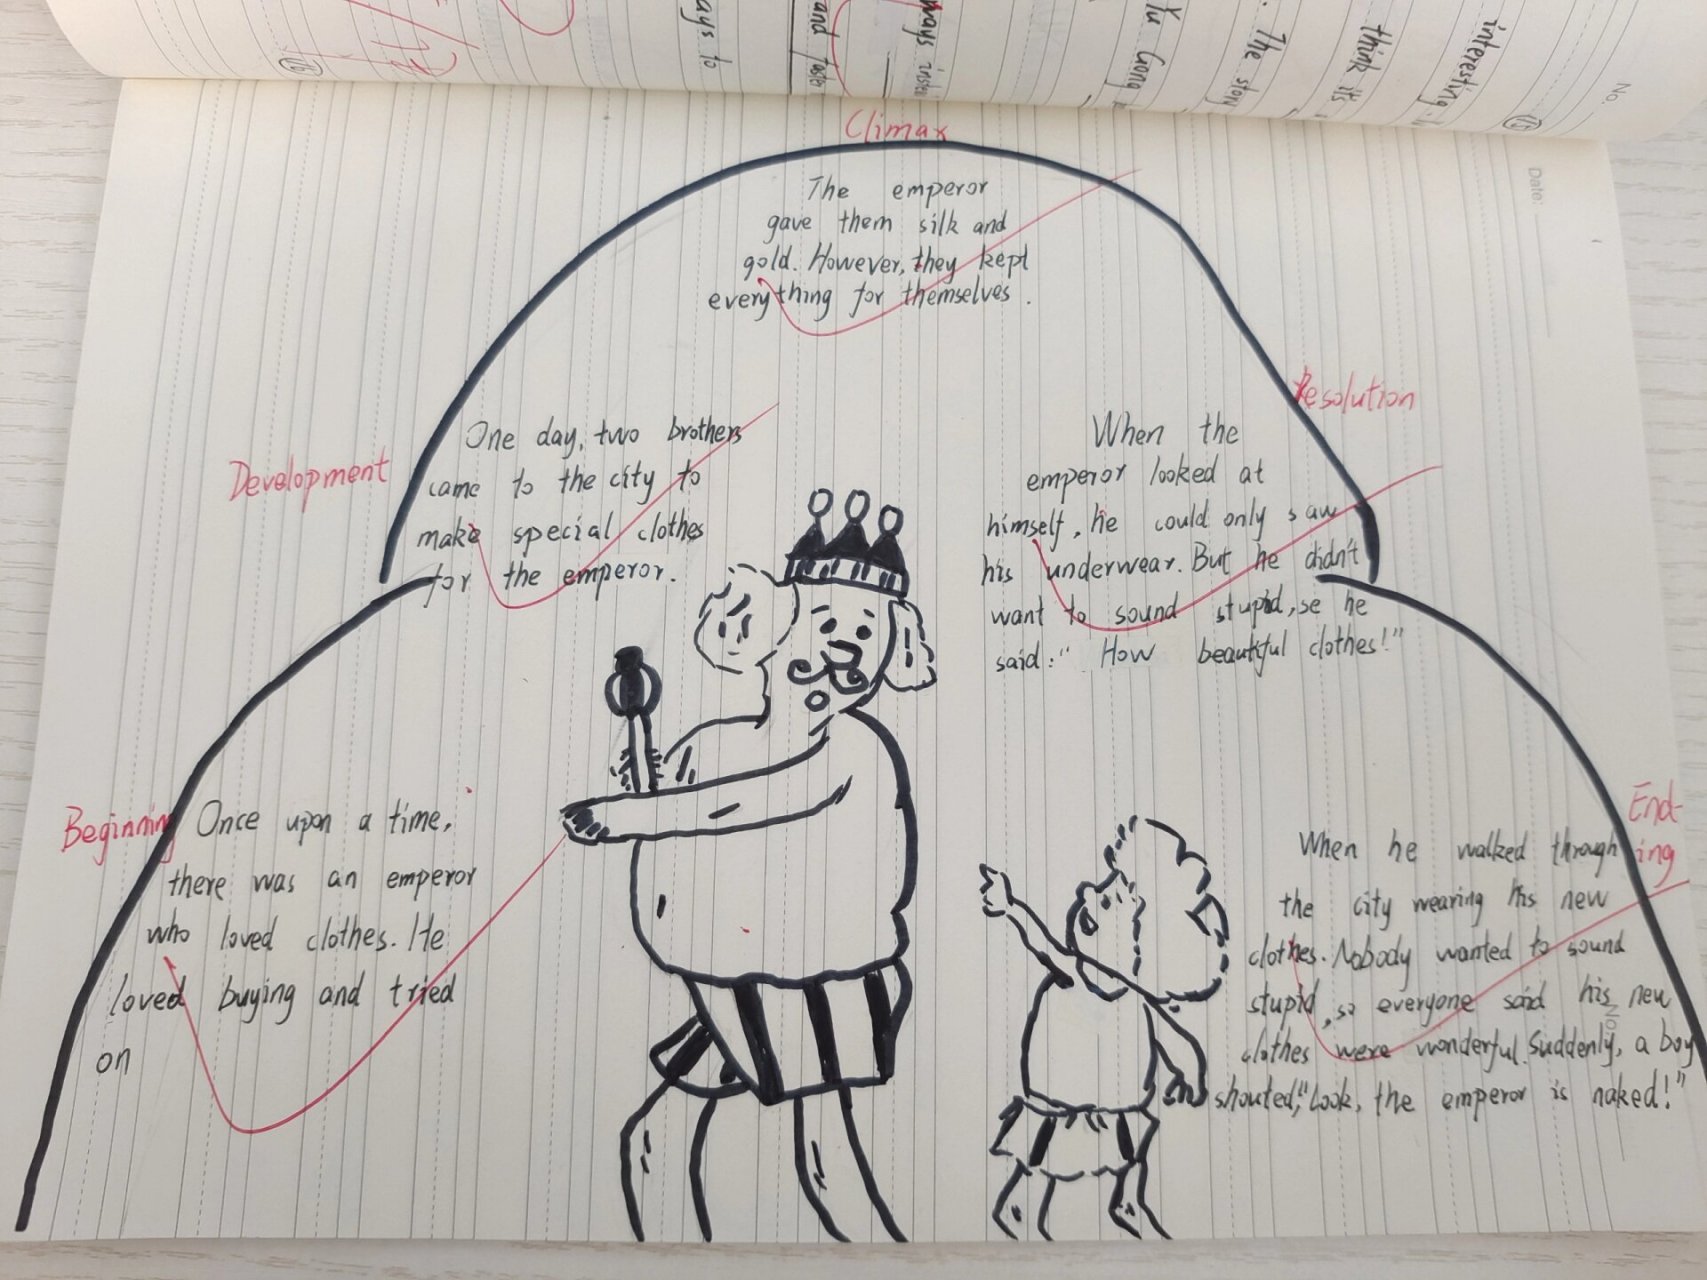 ays to
and taste
ways
Yu Gong
The story
think it's
interesting.
No.
16
15
Date:
Climax
The emperor
gave them silk and
gold. However, they kept
everything for themselves.
Development
One day, two brothers
came to the city to
make special clothes
for the emperor.
Resolution
When the
emperor looked at
himself, he could only saw
his underwear. But he didn't
want to sound stupid, se he
said:" How beautiful clothes!"
Beginning
Once upon a time,
there was an emperor
who loved clothes. He
loved buying and tried
on
End-
ing
When he walked through
the city wearing his new
clothes. Nobody wanted to sound
stupid, so everyone said his new
clothes were wonderful. Suddenly, a boy
shouted,"Look, the emperor is naked!"
No.